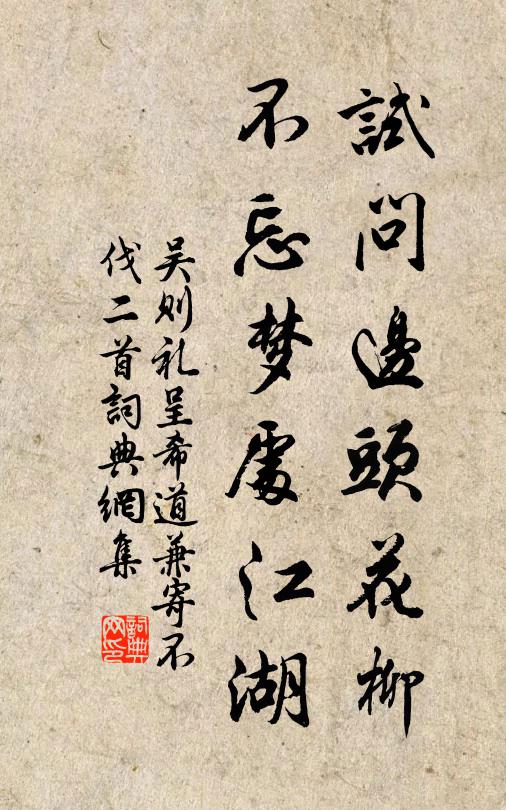 試問邊頭花柳
不忘梦處江湖
吴则礼呈希道兼寄不
伐二首詞典網集
詞典网印